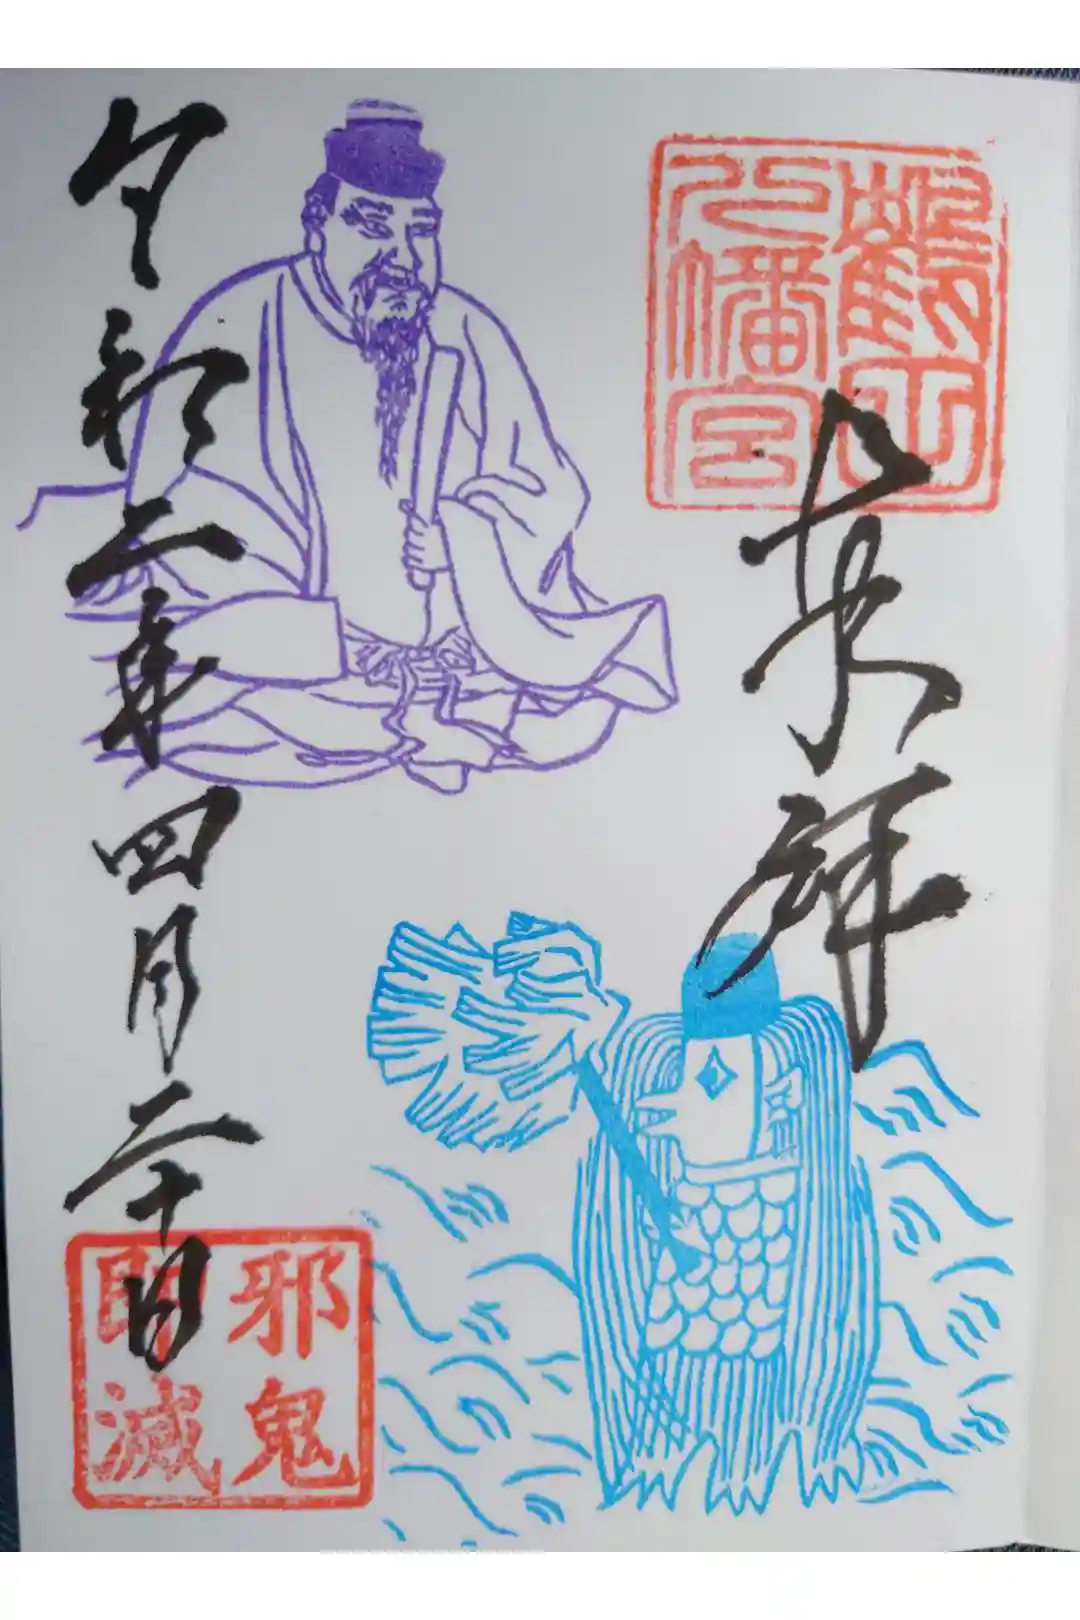 鶴山
八幡宮
奉拝
令和二年四月二十日
邪鬼
即滅